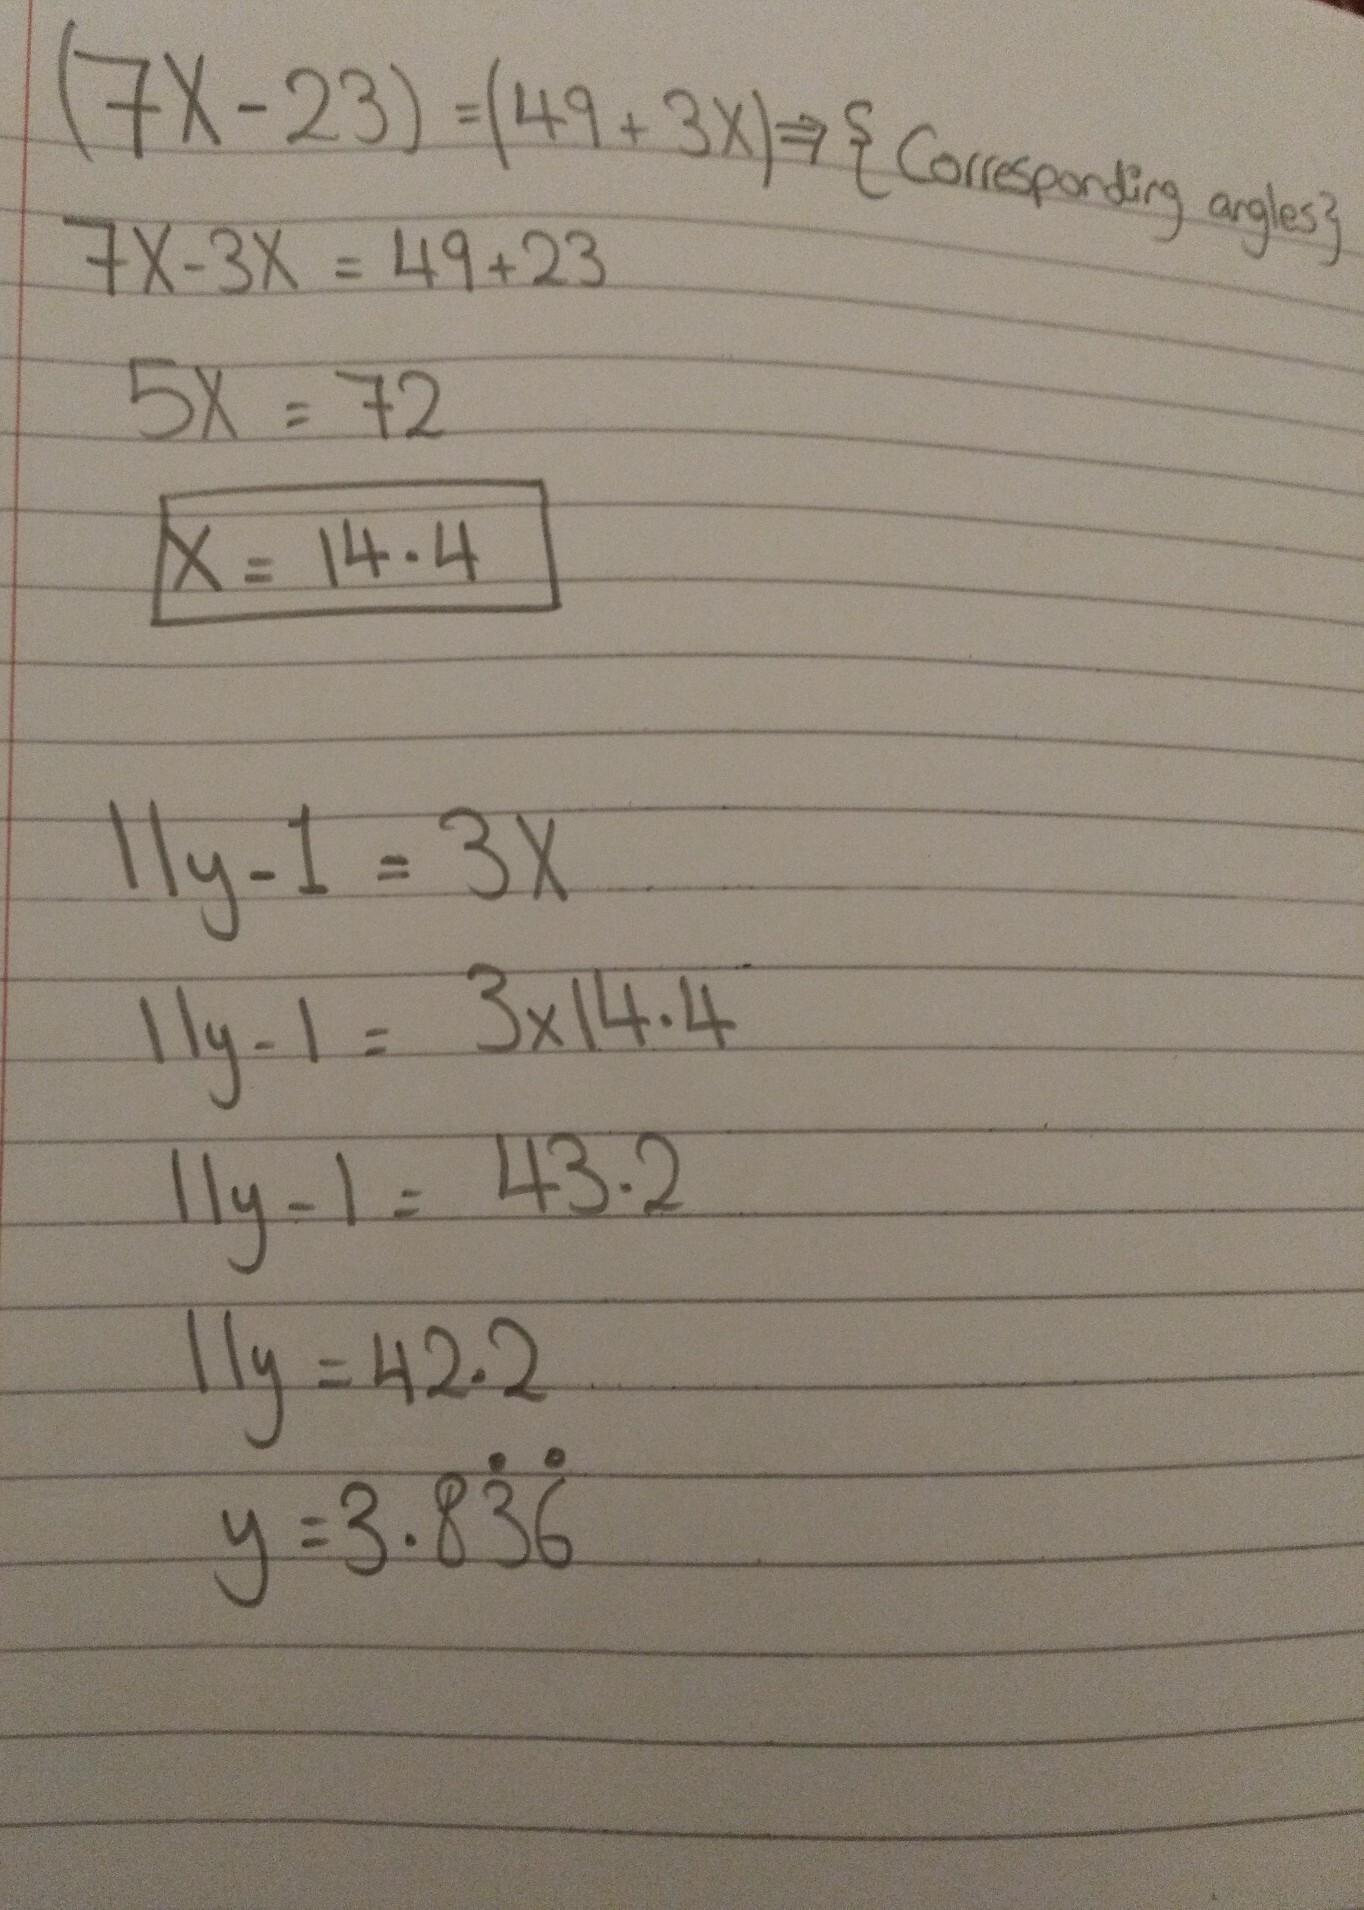 (7X-23) = (49+3X) ⇒ { Corresponding angles}
7X-3X = 49+23
5X = 72
X = 14.4
11y-1 = 3X
11y-1 = 3x14.4
11y-1 = 43.2
11y = 42.2
y = 3.83̇6̇